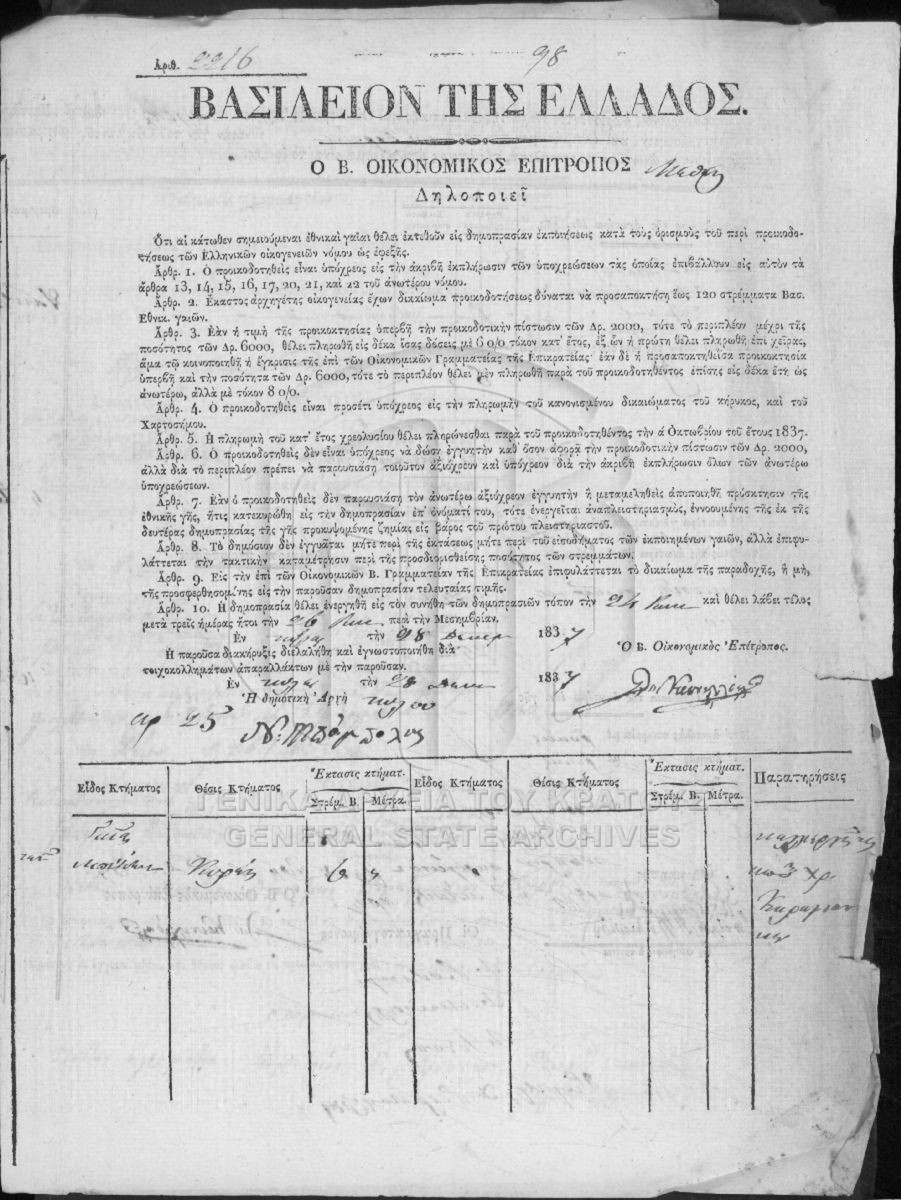 Ἀριθ. 2216
98
ΒΑΣΙΛΕΙΟΝ ΤΗΣ ΕΛΛΑΔΟΣ.
Ο Β. ΟΙΚΟΝΟΜΙΚΟΣ ΕΠΙΤΡΟΠΟΣ
Δηλοποιεῖ
Ὅτι αἱ κάτωθεν σημειούμεναι ἐθνικαὶ γαῖαι θέλει ἐκτεθοῦν εἰς δημοπρασίαν ἐκποιήσεως κατὰ τοὺς ὁρισμοὺς τοῦ περὶ προικοδο-
τήσεως τῶν Ἑλληνικῶν οἰκογενειῶν νόμου ὡς ἐφεξῆς.
Ἄρθρ. 1. Ὁ προικοδοτηθεὶς εἶναι ὑπόχρεος εἰς τὴν ἀκριβῆ ἐκπλήρωσιν τῶν ὑποχρεώσεων τὰς ὁποίας ἐπιβάλλουν εἰς αὐτὸν τὰ
ἄρθρα 13, 14, 15, 16, 17, 20, 21, καὶ 22 τοῦ ἀνωτέρου νόμου.
Ἄρθρ. 2. Ἕκαστος ἀρχηγέτης οἰκογενείας ἔχων δικαίωμα προικοδοτήσεως δύναται νὰ προσαποκτήσῃ ἕως 120 στρέμματα Βασ.
Ἐθνικ. γαιῶν.
Ἄρθρ. 3. Ἐὰν ἡ τιμὴ τῆς προικοκτησίας ὑπερβῇ τὴν προικοδοτικὴν πίστωσιν τῶν Δρ. 2000, τότε τὸ περιπλέον μέχρι τῆς
ποσότητος τῶν Δρ. 6000, θέλει πληρωθῇ εἰς δέκα ἴσας δόσεις μὲ 6 0/0 τόκον κατ' ἔτος, ἐξ ὧν ἡ πρώτη θέλει πληρωθῇ ἐπὶ χεῖρας,
ἅμα τῷ κοινοποιηθῇ ἡ ἔγκρισις τῆς ἐπὶ τῶν Οἰκονομικῶν Γραμματείας τῆς Ἐπικρατείας· ἐὰν δὲ ἡ προσαποκτηθεῖσα προικοκτησία
ὑπερβῇ καὶ τὴν ποσότητα τῶν Δρ. 6000, τότε τὸ περιπλέον θέλει μὲν πληρωθῇ παρὰ τοῦ προικοδοτηθέντος ἐπίσης εἰς δέκα ἔτη ὡς
ἀνωτέρω, ἀλλὰ μὲ τόκον 8 0/0.
Ἄρθρ. 4. Ὁ προικοδοτηθεὶς εἶναι προσέτι ὑπόχρεος εἰς τὴν πληρωμὴν τοῦ κανονισμένου δικαιώματος τοῦ κήρυκος, καὶ τοῦ
Χαρτοσήμου.
Ἄρθρ. 5. Ἡ πληρωμὴ τοῦ κατ' ἔτος χρεολυσίου θέλει πληρώνεσθαι παρὰ τοῦ προικοδοτηθέντος τὴν ά Ὀκτωβρίου τοῦ ἔτους 1837.
Ἄρθρ. 6. Ὁ προικοδοτηθεὶς δὲν εἶναι ὑπόχρεος νὰ δώσῃ ἐγγυητὴν καθ' ὅσον ἀφορᾷ τὴν προικοδοτικὴν πίστωσιν τῶν Δρ. 2000,
ἀλλὰ διὰ τὸ περιπλέον πρέπει νὰ παρουσιάσῃ τοιοῦτον ἀξιόχρεον καὶ ὑπόχρεον διὰ τὴν ἀκριβῆ ἐκπλήρωσιν ὅλων τῶν ἀνωτέρω
ὑποχρεώσεων.
Ἄρθρ. 7. Ἐὰν ὁ προικοδοτηθεὶς δὲν παρουσιάσῃ τὸν ἀνωτέρω ἀξιόχρεον ἐγγυητὴν ἢ μεταμεληθεὶς ἀποποιηθῇ πρόσκτησιν τῆς
ἐθνικῆς γῆς, ἥτις κατεκυρώθη εἰς τὴν δημοπρασίαν ἐπ' ὀνόματί του, τότε ἐνεργεῖται ἀναπλειστηριασμὸς, ἐννοουμένης τῆς ἐκ τῆς
δευτέρας δημοπρασίας τῆς γῆς προκυψομένης ζημίας εἰς βάρος τοῦ πρώτου πλειστηριαστοῦ.
Ἄρθρ. 8. Τὸ δημόσιον δὲν ἐγγυᾶται μήτε περὶ τῆς ἐκτάσεως μήτε περὶ τοῦ εἰσοδήματος τῶν ἐκποιημένων γαιῶν, ἀλλὰ ἐπιφυ-
λάττεται τὴν τακτικὴν καταμέτρησιν περὶ τῆς προσδιορισθείσης ποσότητος τῶν στρεμμάτων.
Ἄρθρ. 9. Εἰς τὴν ἐπὶ τῶν Οἰκονομικῶν Β. Γραμματείαν τῆς Ἐπικρατείας ἐπιφυλάττεται τὸ δικαίωμα τῆς παραδοχῆς, ἢ μὴ,
τῆς προσφερθησομένης εἰς τὴν παροῦσαν δημοπρασίαν τελευταίας τιμῆς.
Ἄρθρ. 10. Ἡ δημοπρασία θέλει ἐνεργηθῆ εἰς τὸν συνήθη τῶν δημοπρασιῶν τόπον τὴν 24 καὶ θέλει λάβει τέλος
μετὰ τρεῖς ἡμέρας ἤτοι τὴν 26 περὶ τὴν Μεσημβρίαν.
Ἐν τὴν 28 1837
Ὁ Β. Οἰκονομικὸς Ἐπίτροπος.
Ἡ παροῦσα διακήρυξις διελαλήθη καὶ ἐγνωστοποιήθη διὰ
τοιχοκολλημάτων ἀπαραλλάκτων μὲ τὴν παροῦσαν.
Ἐν τὴν 28 1837
Ἡ δημοτικὴ Ἀρχὴ
αρ 25
Εἶδος Κτήματος Θέσις Κτήματος Ἔκτασις κτήματ. Εἶδος Κτήματος Θέσις Κτήματος Ἔκτασις κτήματ. Παρατηρήσεις
Στρέμ. Β. Μέτρα. Στρέμ. Β. Μέτρα.
ΓΕΝΙΚΑ ΑΡΧΕΙΑ ΤΟΥ ΚΡΑΤΟΥΣ
GENERAL STATE ARCHIVES